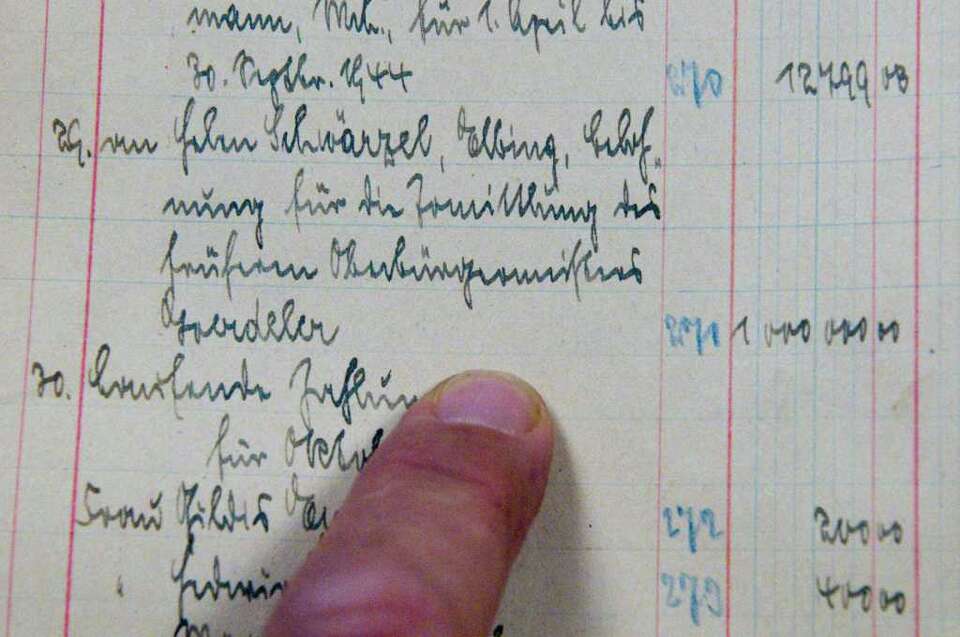 mann, Mrb., für 1. April bis
30. Septbr. 1944 270 12799 03
29. an Helen Schwärzel, Elbing, Beloh-
nung für die Ermittlung des
früheren Oberbürgermeisters
Goerdeler 271 1 000 000 00
30. Laufende Zahlun
für Okto
Frau Hildis 272 200 00
" Hedwi 273 400 00